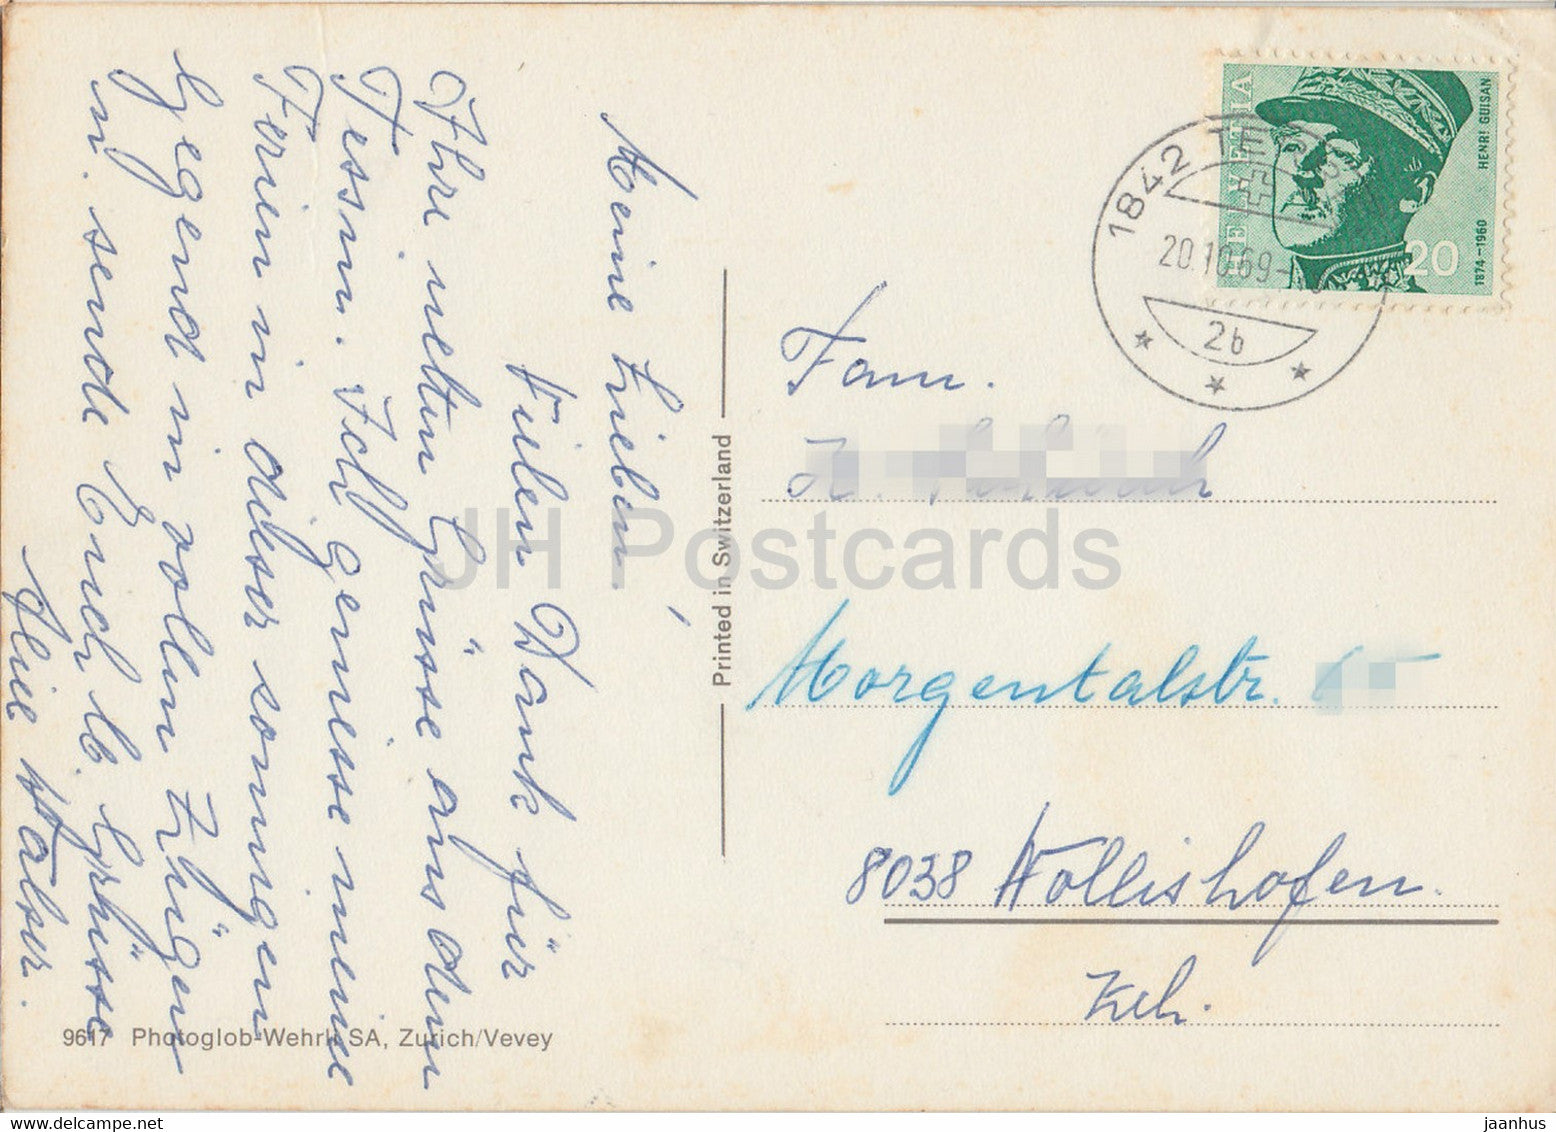 Meine Lieben!
Vielen Dank für
Ihre netten Grüsse aus dem
Tessin. Ich geniesse meine
Ferien in dieser sonnigen
Gegend in vollen Zügen
u. sende Euch lb. Grüsse
HELVETIA
HENRI GUISAN
1874–1960
20
1842 TE
20.10.69-
2b
Fam.
Morgentalstr.
8038 Wollishofen.
Zch.
Printed in Switzerland
9617 Photoglob-Wehrli SA, Zurich/Vevey
JH Postcards
jaanhus